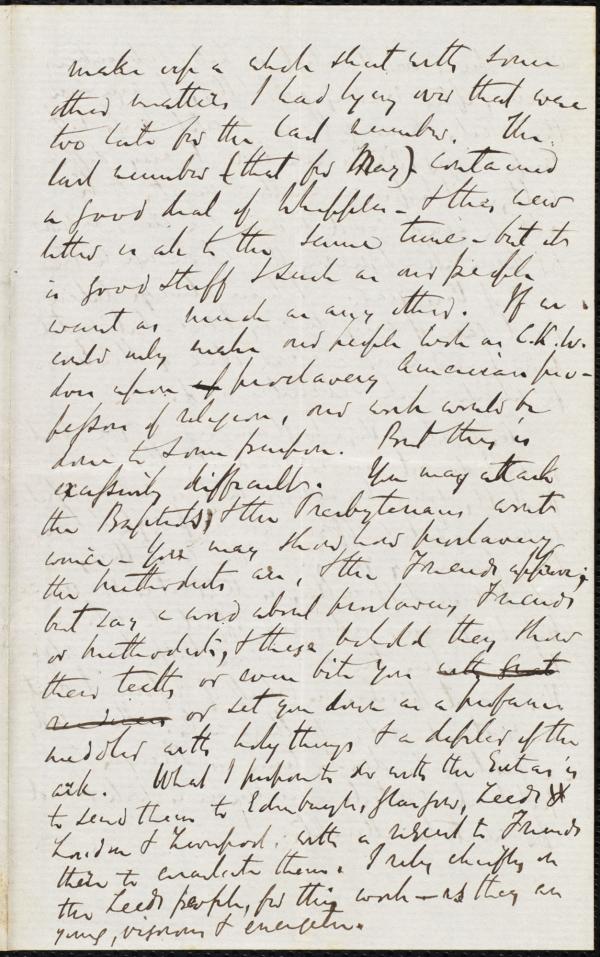 make up a whole sheet with some
other matters I had lying over that were
too late for the last number. The
last number (that for May) contained
a good deal of Whipples - & this new
letter is ale to the same tune - but it
is good stuff & such as our people
want as much as any other. If we
could only make our people look as C.K.W.
does upon <s>of</s> proslavery American pro-
fession of religion, our work would be
done to some purpose. But this is
excessively difficult. You may attack
the Baptists, & the Presbyterians wont
wince - You may show how proslavery
the methodists are, & the Friends approve;
but say a word about proslavery Friends
or methodists, & these behold they show
their teeth or even bite you <s>with great</s>
or set you down as a profane
medler with holy things & a defiler of the
ark. What I propose to do with the Extras is
to send them to Edinburgh, Glasgow, Leeds
London & Liverpool. with a request to Friends
there to circulate them. I rely chiefly on
the Leeds people, for this work - as they are
young, vigorous & energetic.